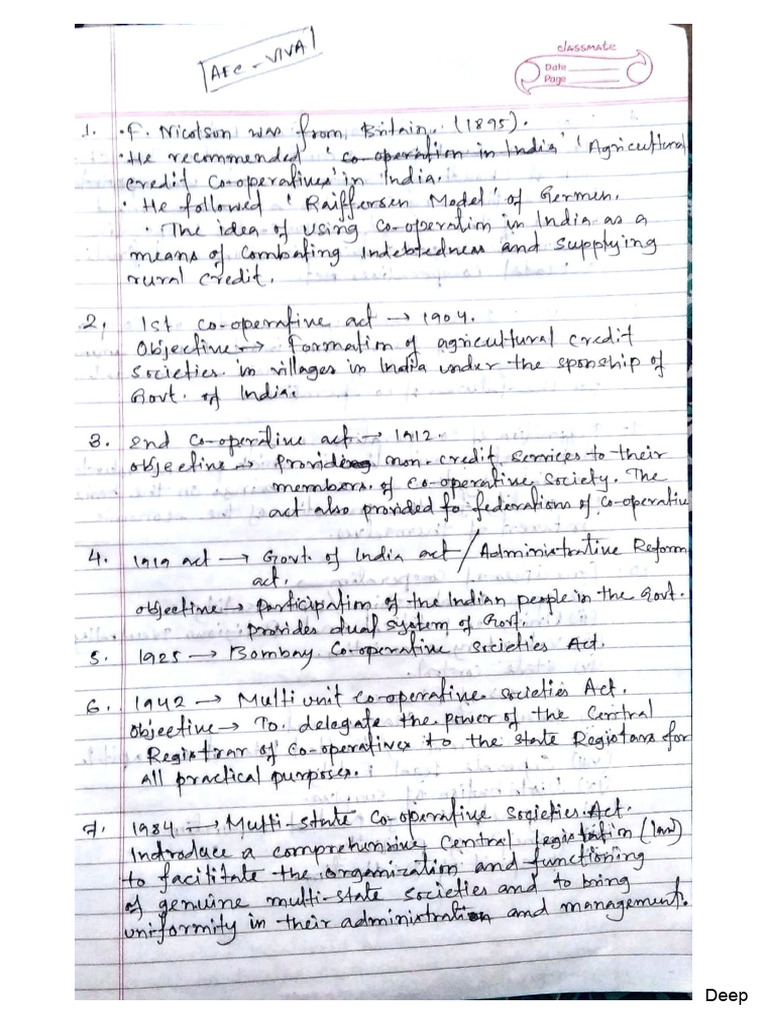 AEC - VIVA
classmate
Date
Page
1. • F. Nicolson was from Britain. (1895).
• He recommended ' co-operation in India' 'Agricultural
credit Co-operatives' in India.
• He followed ' Raiffersen Model' of Germen.
• The idea of using Co-operation in India as a
means of Combating Indebtedness and supplying
rural credit.
2. 1st co-operative act → 1904.
Objective → Formation of agricultural credit
societies in villages in India under the sponship of
Govt. of India.
3. 2nd Co-operative act → 1912.
objective → Providing non-credit services to their
members of co-operative society. The
act also provided fo federations of co-operative
4. 1919 act → Govt. of India act / Administrative Reform
act.
objective → Participation of the Indian people in the Govt.
provides dual system of Govt.
5. 1925 → Bombay Co-operative societies Act.
6. 1942 → Multi unit co-operative societies Act.
Objective → To delegate the power of the Central
Registrar of co-operatives to the state Registars for
all practical purposes.
7. 1984 → Multi-state co-operative societies Act.
Introduce a comprehensive Central legislation (law)
to facilitate the organization and functioning
of genuine multi-state societies and to bring
uniformity in their administration and management.
Deep